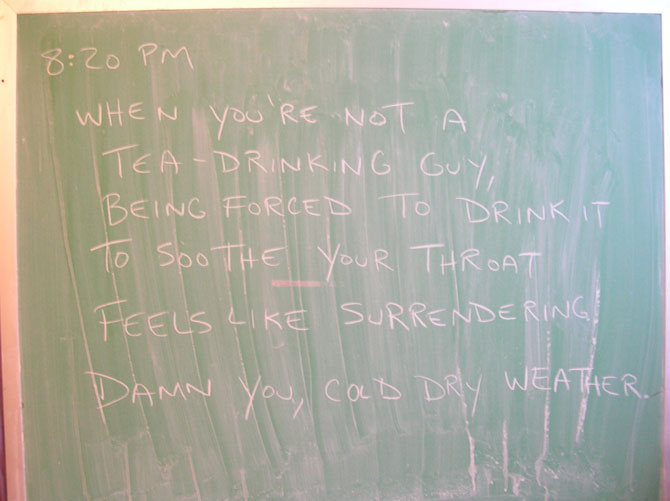 8:20 PM
WHEN YOU'RE NOT A
TEA-DRINKING GUY,
BEING FORCED TO DRINK IT
TO SOOTHE YOUR THROAT
FEELS LIKE SURRENDERING.
DAMN YOU, COLD DRY WEATHER.